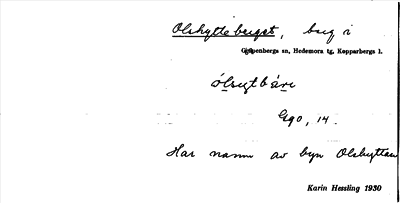 Olshytteberget, berg i
Garpenbergs sn, Hedemora tg, Kopparbergs l.
ólsytbári
Ego, 14.
Har namn av byn Olshyttan
Karin Hessling 1930